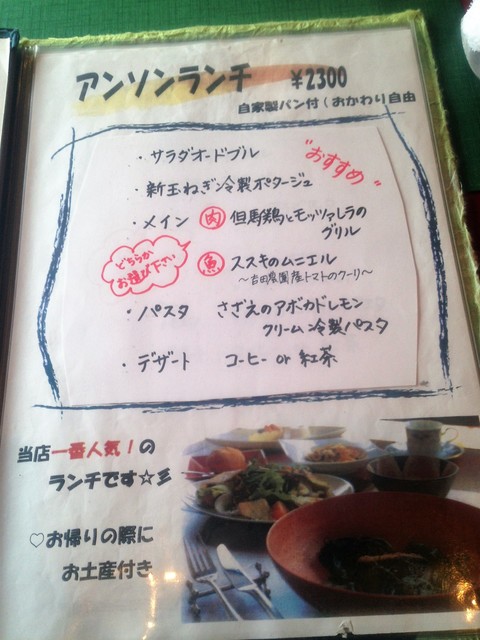 アンソンランチ ¥2300
自家製パン付(おかわり自由
・サラダオードブル
"おすすめ"
・新玉ねぎ冷製ポタージュ
・メイン 肉 但馬鶏とモッツァレラの
グリル
どちらか
お選び下さい
魚 スズキのムニエル
～吉田農園産トマトのクーリ～
・パスタ さざえのアボカドレモン
クリーム冷製パスタ
・デザート コーヒー or 紅茶
当店一番人気！の
ランチです☆彡
♡お帰りの際に
お土産付き